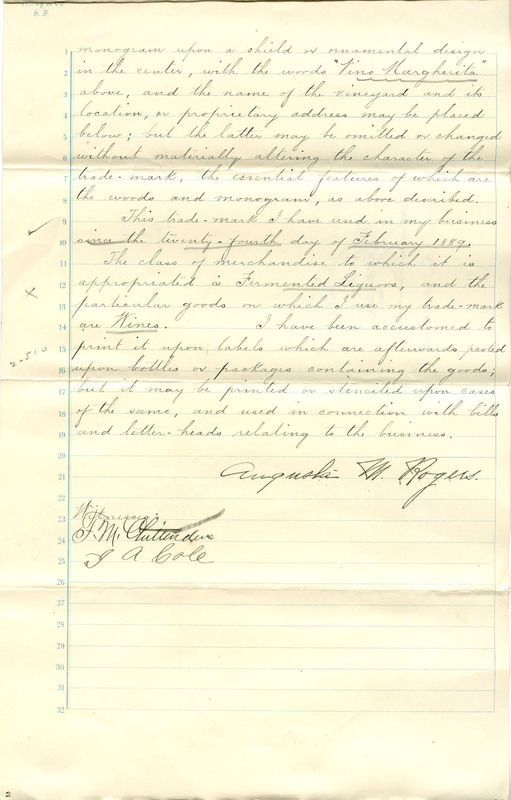 89
1 monogram upon a shield or ornamental design
2 in the center, with the words "Vino Margherita"
3 above, and the name of the vineyard and its
4 location, or proprietary address may be placed
5 below; but the latter may be omitted or changed
6 without materially altering the character of the
7 trade-mark, the essential features of which are
8 the words and monogram, as above described.
9 This trade-mark I have used in my business
10 since the twenty-fourth day of February 1889.
11 The class of merchandise to which it is
12 appropriated is Fermented Liquors, and the
13 particular goods on which I use my trade-mark
14 are Wines. I have been accustomed to
15 print it upon labels which are afterwards pasted
16 upon bottles or packages containing the goods;
17 but it may be printed or stenciled upon cases
18 of the same, and used in connection with bills
19 and letter-heads relating to the business.
20
21 Augusta M. Rogers.
22
23 Witnesses:
24 F. M. Chittenden
25 A Cole
26
27
28
29
30
31
32
x
2-510
2